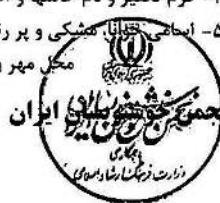 ۵- اسامی خوانا، مشکی و پر ر
محل مهر و
انجمن خوشنویسان ایران
با همکاری
وزارت فرهنگ و ارشاد اسلامی